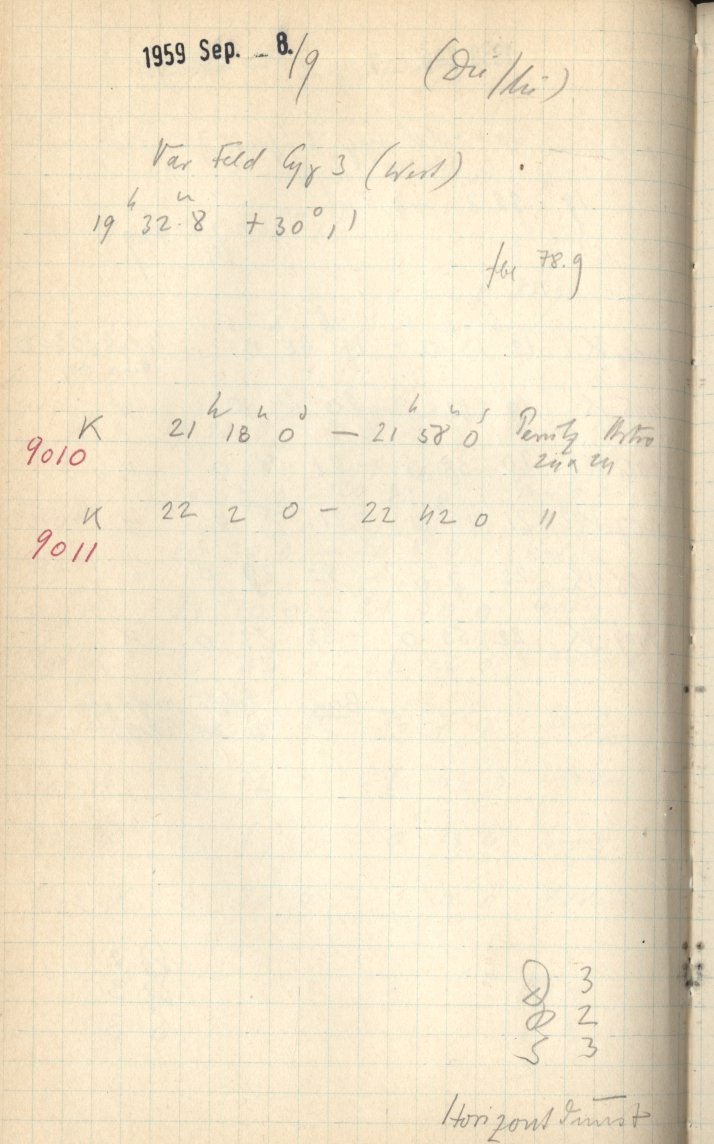 1959 Sep. 8./9 (Dü/Mi)
Var Feld Cyg 3 (West)
19h 32m.8 +30°,1
78.9
K 21h 18m 0s — 21h 58m 0s Astro
9010
K 22 2 0 — 22 42 0 "
9011
3
2
S 3
Horizontdunst